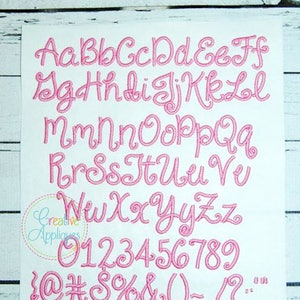 AaBbCcDdEeFf
GgHhIiJjKkLl
MmNnOoPpQq
RrSsTtUuVv
WwXxYyZz
Creative
Appliques
0123456789
{@#$%&()~/?"!!